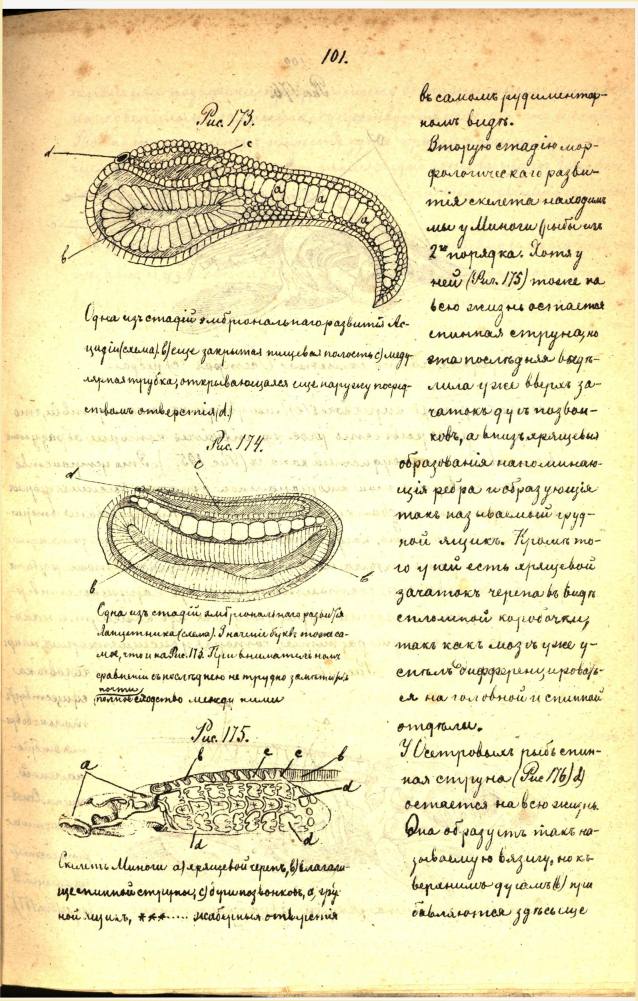 101.
Рис. 173.
d
c
a
a
a
b
Одна изъ стадій эмбріональнаго развитія Ас-
цидіи (схема). b) еще закрытая пищевая полость c) меду-
лярная трубка, открывающаяся еще наружу посред-
ствомъ отверстія (d.)
Рис. 174.
d
c
b
b
Одна изъ стадій эмбріональнаго развитія
Ланцетника (схема). Значеніе буквъ тоже са-
мое, что и на Рис. 173. При внимательномъ
сравненіи съ послѣднею не трудно замѣтить
почти
полное сходство между ними
Рис. 175.
a
b
c
c
b
d
d
d
Скелетъ Миноги a) хрящевой черепъ, b) влагали-
ще спинной струны, c) дуги позвонковъ, d) груд-
ной ящикъ, ***..... жаберныя отверстія
въ самомъ рудиментар-
номъ видѣ.
Вторую стадію мор-
фологическаго разви-
тія скелета находимъ
мы у Миноги (рыбы изъ
2го порядка. Хотя у
ней (Рис. 175) тоже на
всю жизнь остается
спинная струна, но
эта послѣдняя выдѣ-
лила уже вверхъ за-
чатокъ дугъ позвон-
ковъ, а внизъ хрящевыя
образованія напоминаю-
щія ребра и образующія
такъ называемый груд-
ной ящикъ. Кромѣ то-
го у ней есть хрящевой
зачатокъ черепа въ видѣ
сплошной коробочки,
такъ какъ мозгъ уже у-
спѣлъ дифференцировать-
ся на головной и спинной
отдѣлы.
У Осетровыхъ рыбъ спин-
ная струна (Рис 176) d)
остается на всю жизнь.
Она образуетъ такъ на-
зываемую вязигу, но къ
верхнимъ дугамъ (b) при
бавляются здѣсь еще